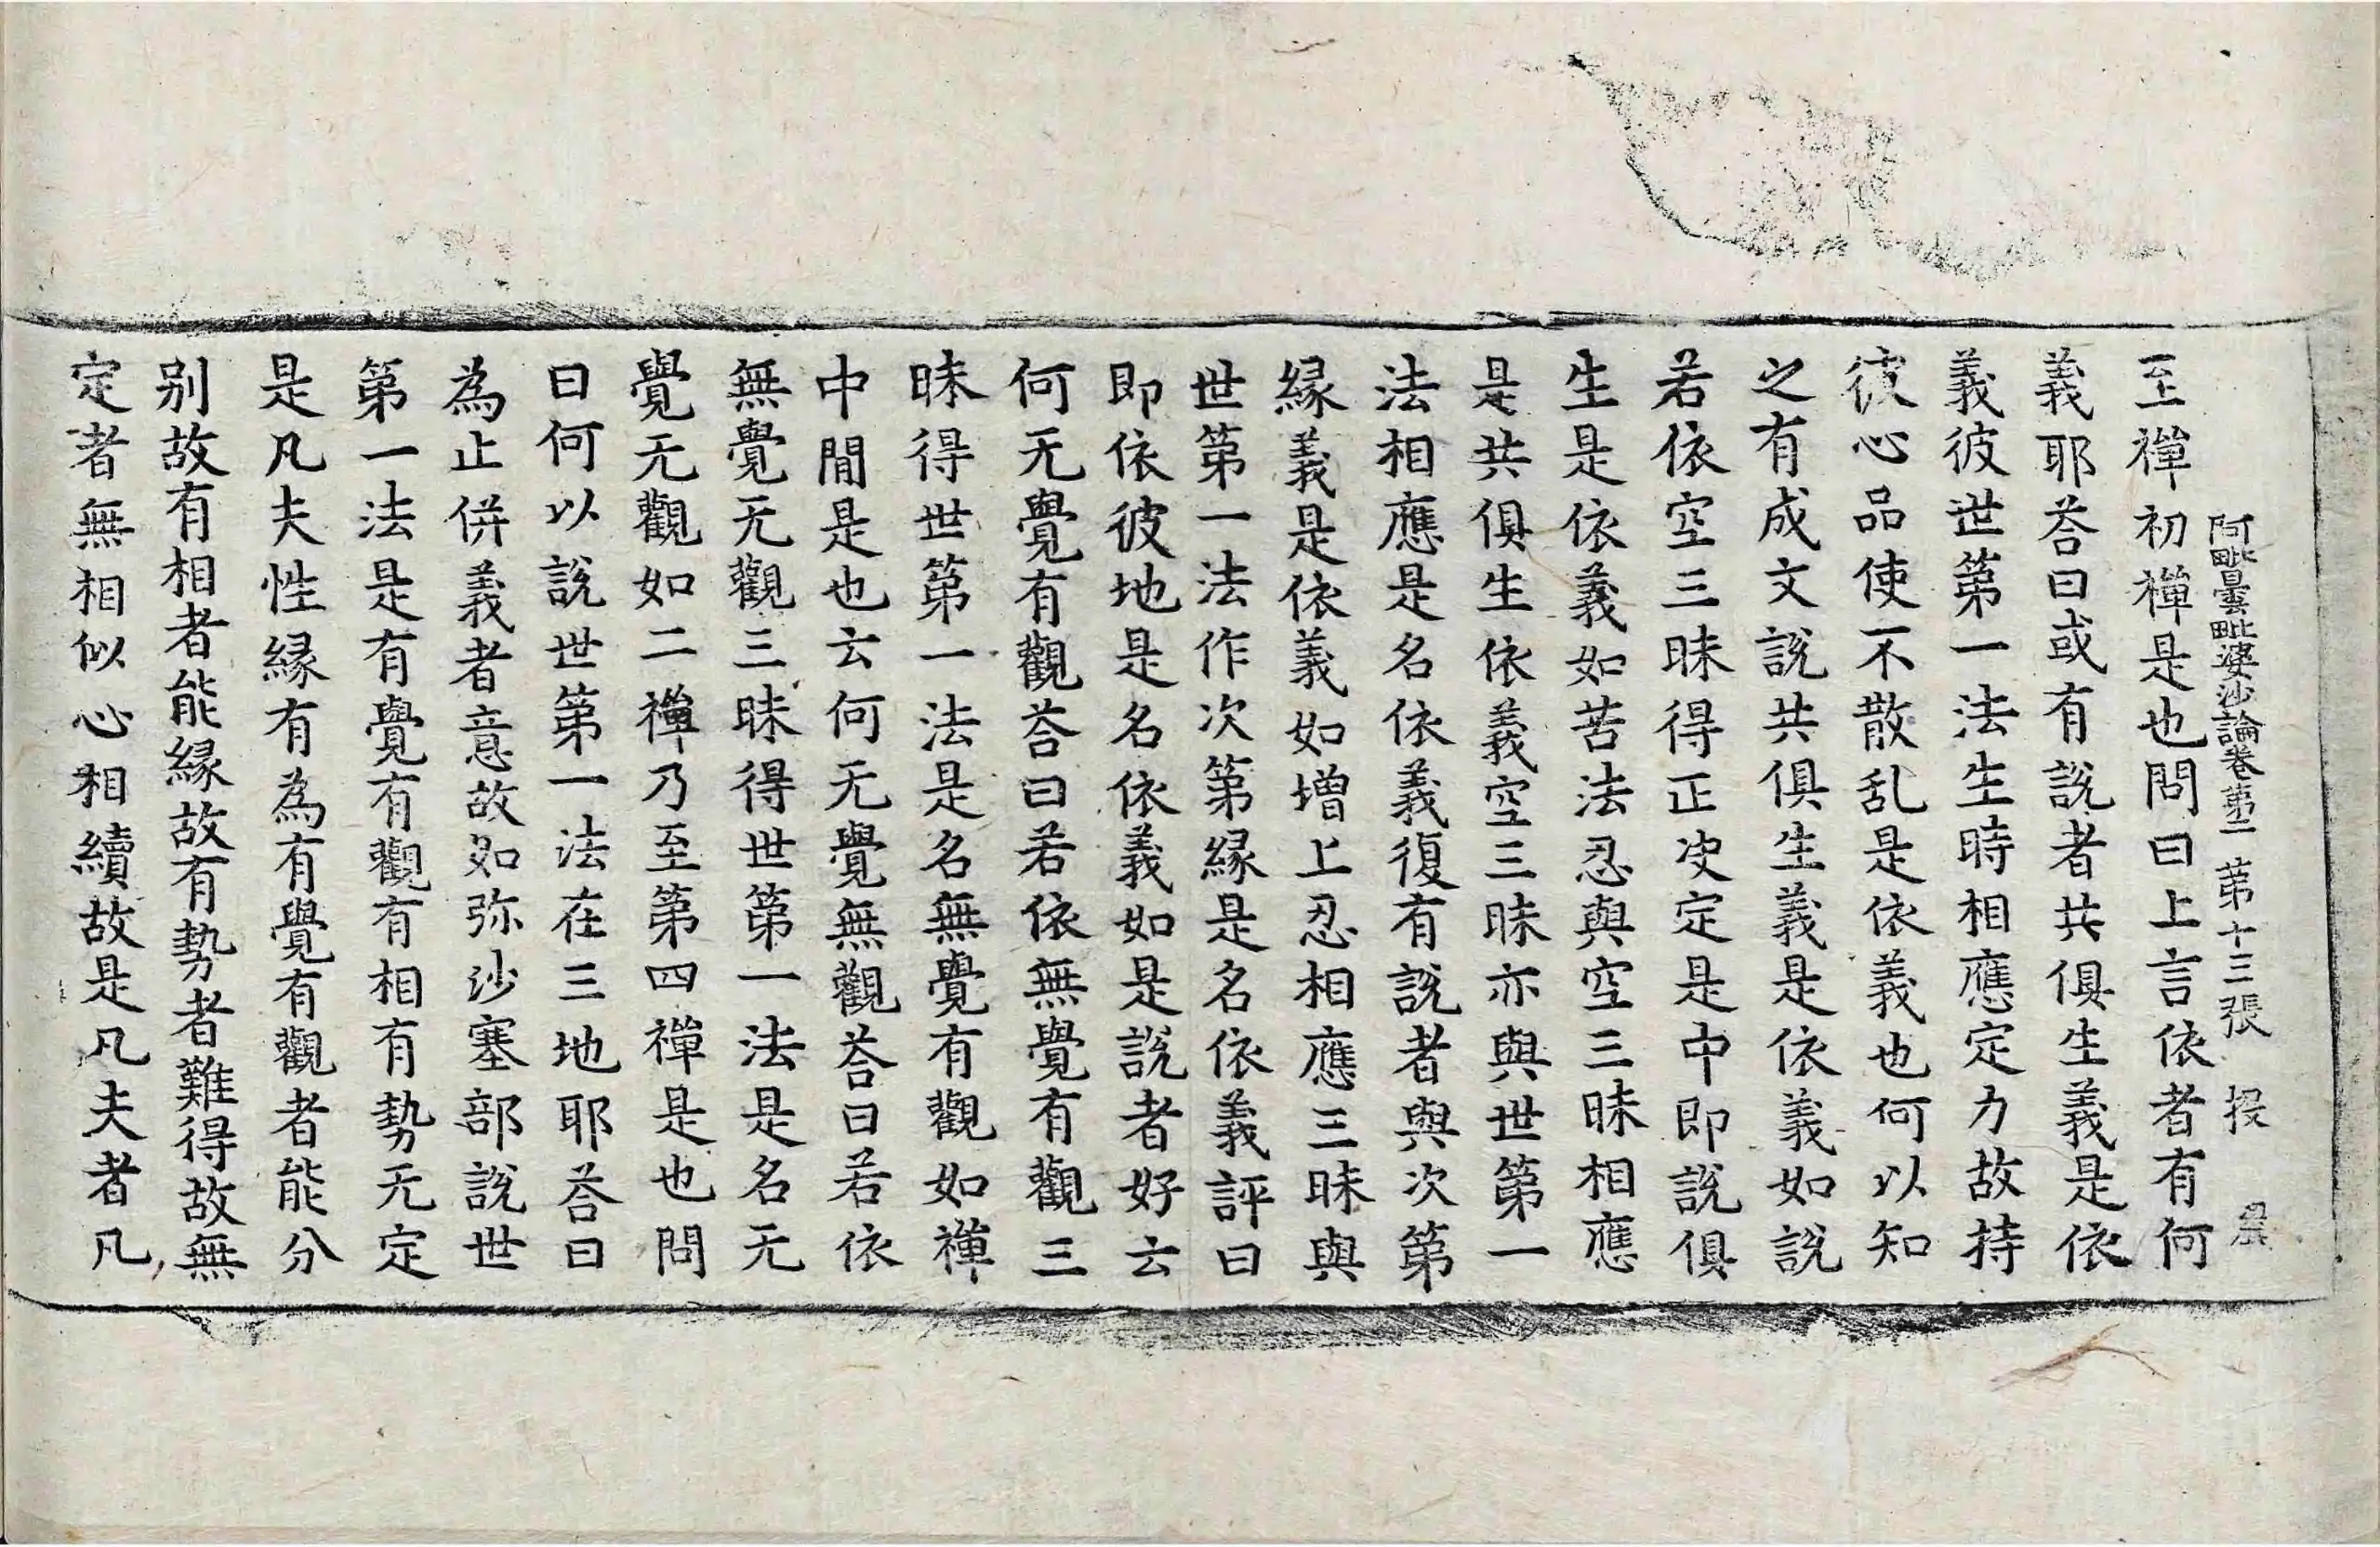 阿毗曇毗婆沙論卷第二 第十三張 投
至禪初禪是也問曰上言依者有何
義耶荅曰或有說者共俱生義是依
義彼世第一法生時相應定力故持
彼心品使不散乱是依義也何以知
之有成文說共俱生義是依義如說
若依空三昧得正决定是中即說俱
生是依義如苦法忍與空三昧相應
是共俱生依義空三昧亦與世第一
法相應是名依義復有說者與次第
緣義是依義如增上忍相應三昧與
世第一法作次第緣是名依義評曰
即依彼地是名依義如是說者好云
何无覺有觀荅曰若依無覺有觀三
昧得世第一法是名無覺有觀如禪
中間是也云何无覺無觀荅曰若依
無覺无觀三昧得世第一法是名无
覺无觀如二禪乃至第四禪是也問
曰何以說世第一法在三地耶荅曰
為止併義者意故如弥沙塞部說世
第一法是有覺有觀有相有勢无定
是凡夫性緣有為有覺有觀者能分
别故有相者能緣故有勢者難得故無
定者無相似心相續故是凡夫者凡